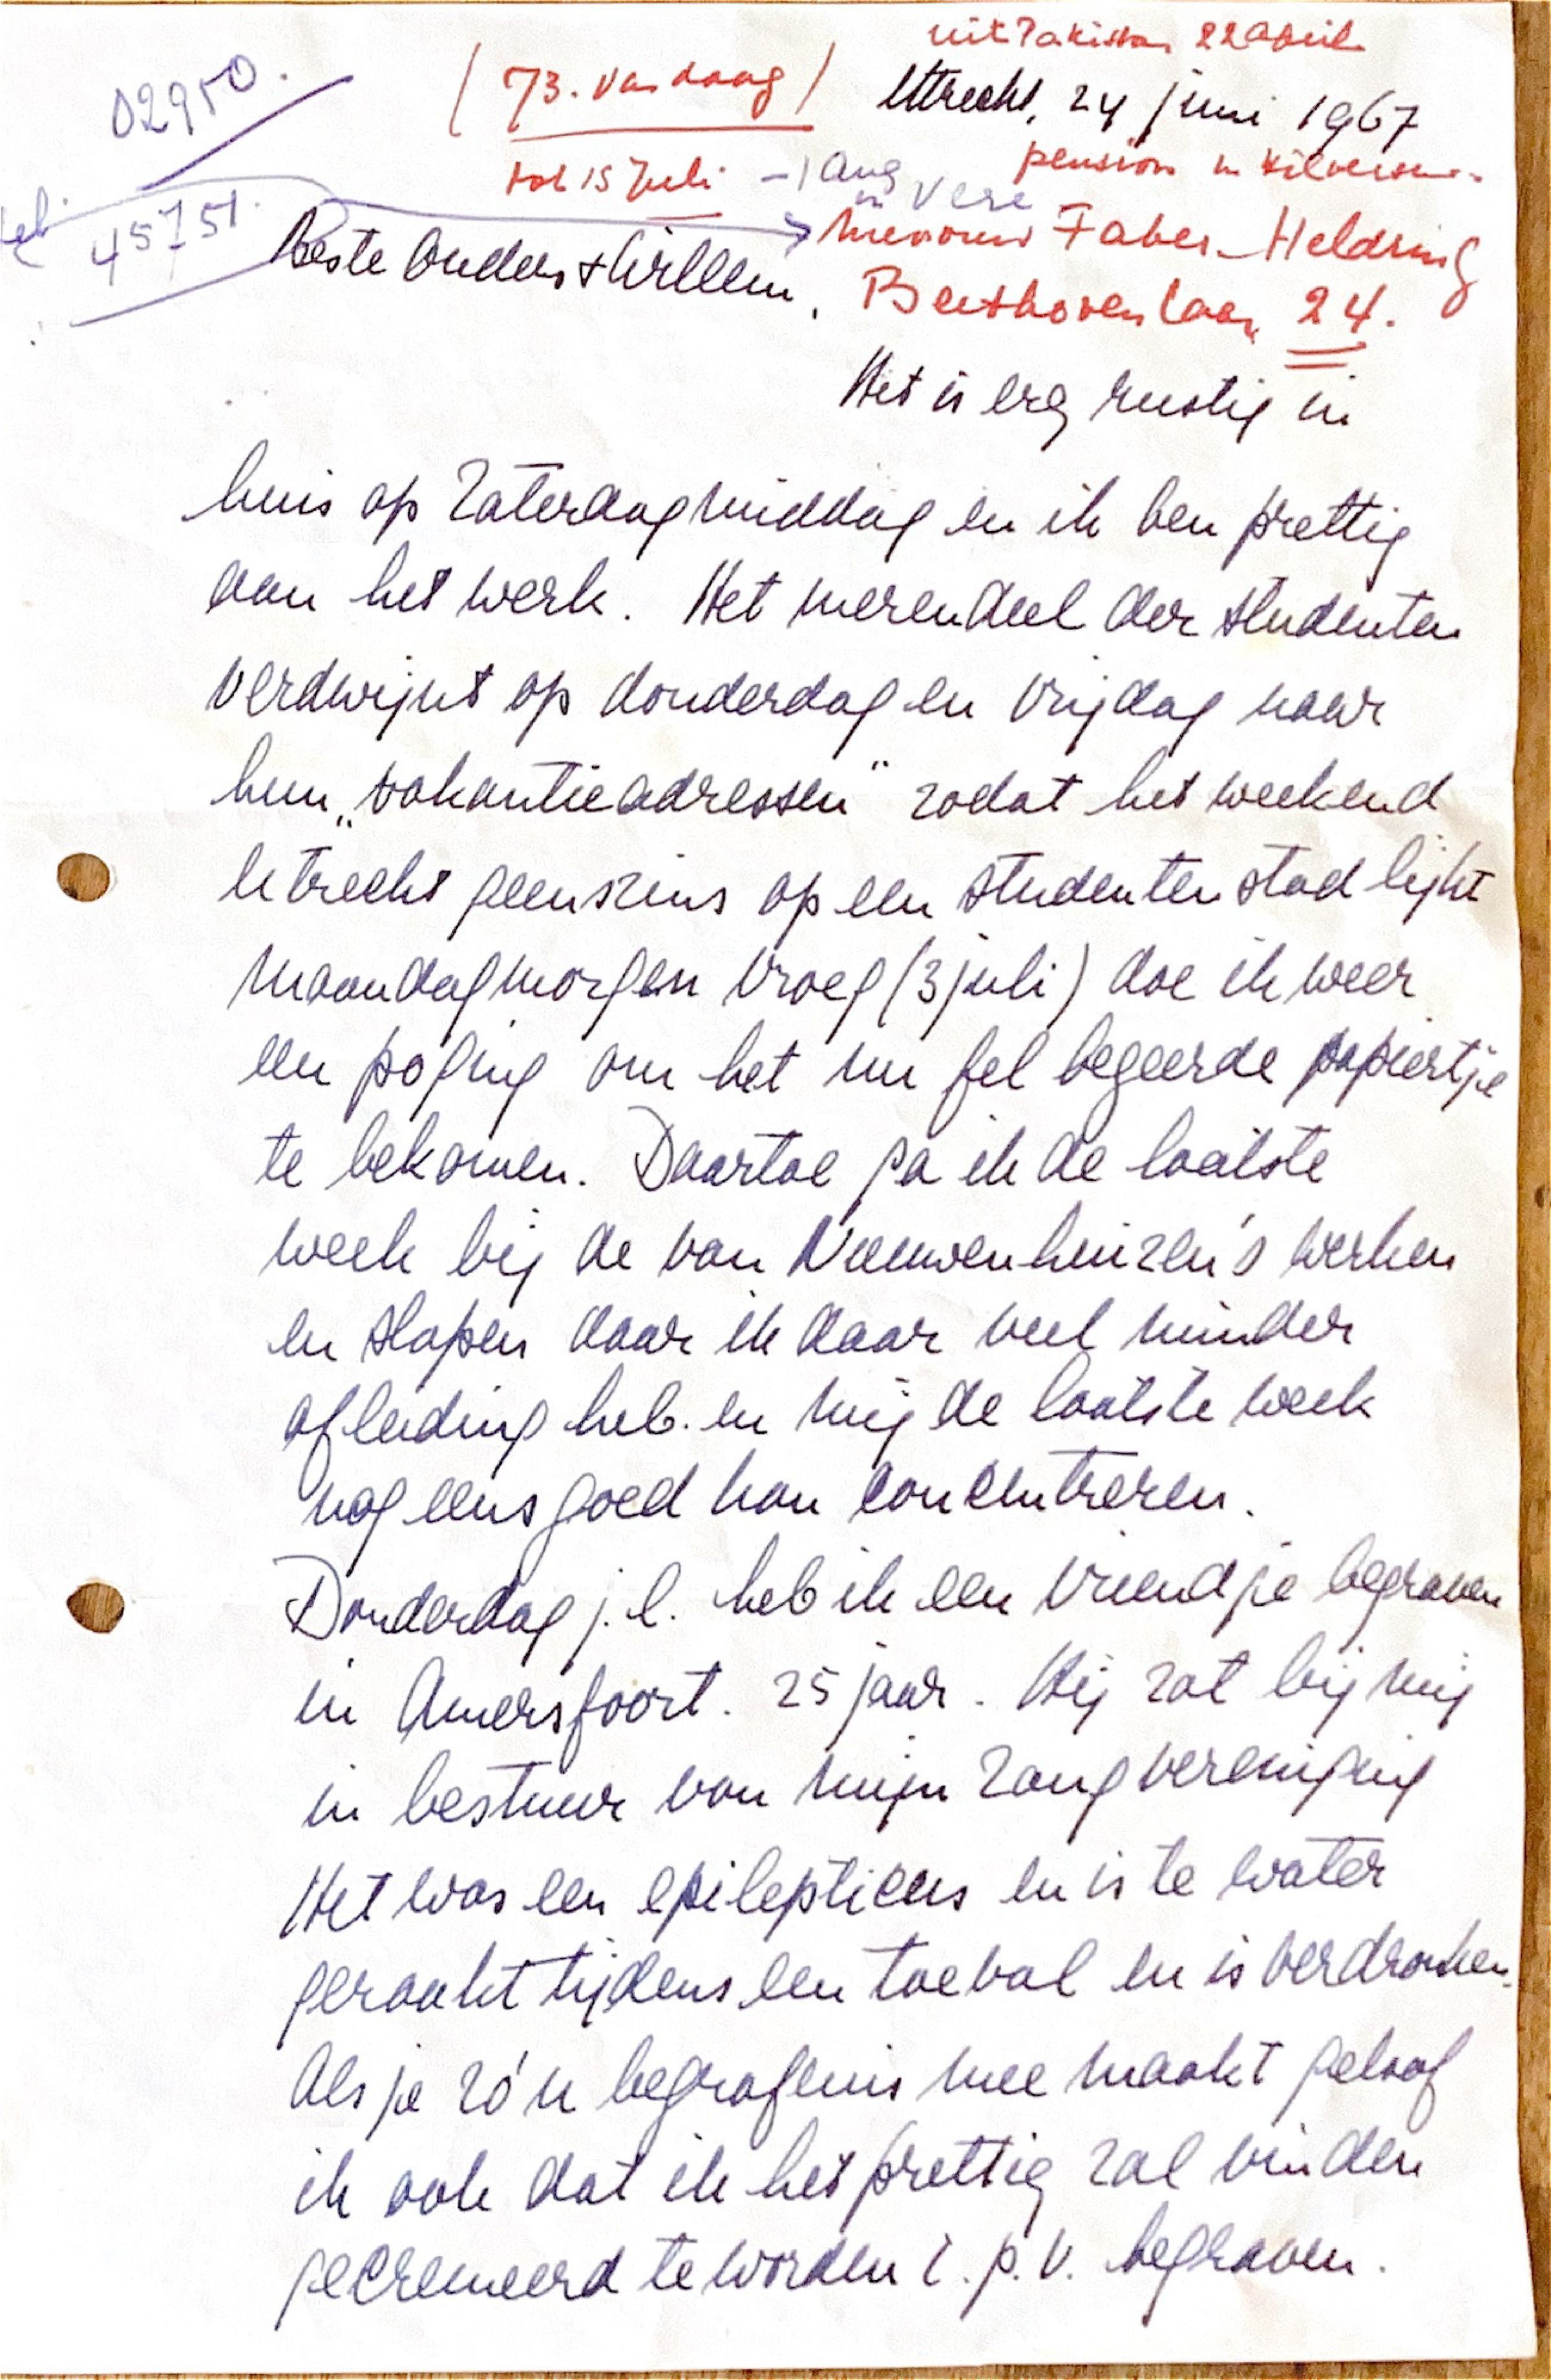 uit Pakistan 22 april
02950.
( 73. vandaag )
Utrecht, 24 juni 1967
pension in Hilversum.
tot 15 Juli - 1 Aug
in Vere
tel.
45751.
Mevrouw Faber-Heldring
Beste Ouders + Willem,
Beethovenlaan 24.
Het is erg rustig in
huis op Zaterdagmiddag en ik ben prettig
aan het werk. Het merendeel der studenten
verdwijnt op donderdag en vrijdag naar
hun „vakantieadressen" zodat het weekend
Utrecht geenszins op een studentenstad lijkt
Maandagmorgen vroeg (3 juli) doe ik weer
een poging om het nu fel begeerde papiertje
te bekomen. Daartoe ga ik de laatste
week bij de van Nieuwenhuizen's werken
en slapen daar ik daar veel minder
afleiding heb. en mij de laatste week
nog eens goed kan concentreren.
Donderdag j.l. heb ik een vriendje begraven
in Amersfoort. 25 jaar. Hij zat bij mij
in bestuur van mijn Zangvereniging
Het was een epilepticus en is te water
geraakt tijdens een toeval en is verdronken.
Als je zo'n begrafenis mee maakt geloof
ik ook dat ik het prettig zal vinden
gecremeerd te worden i.p.v. begraven.